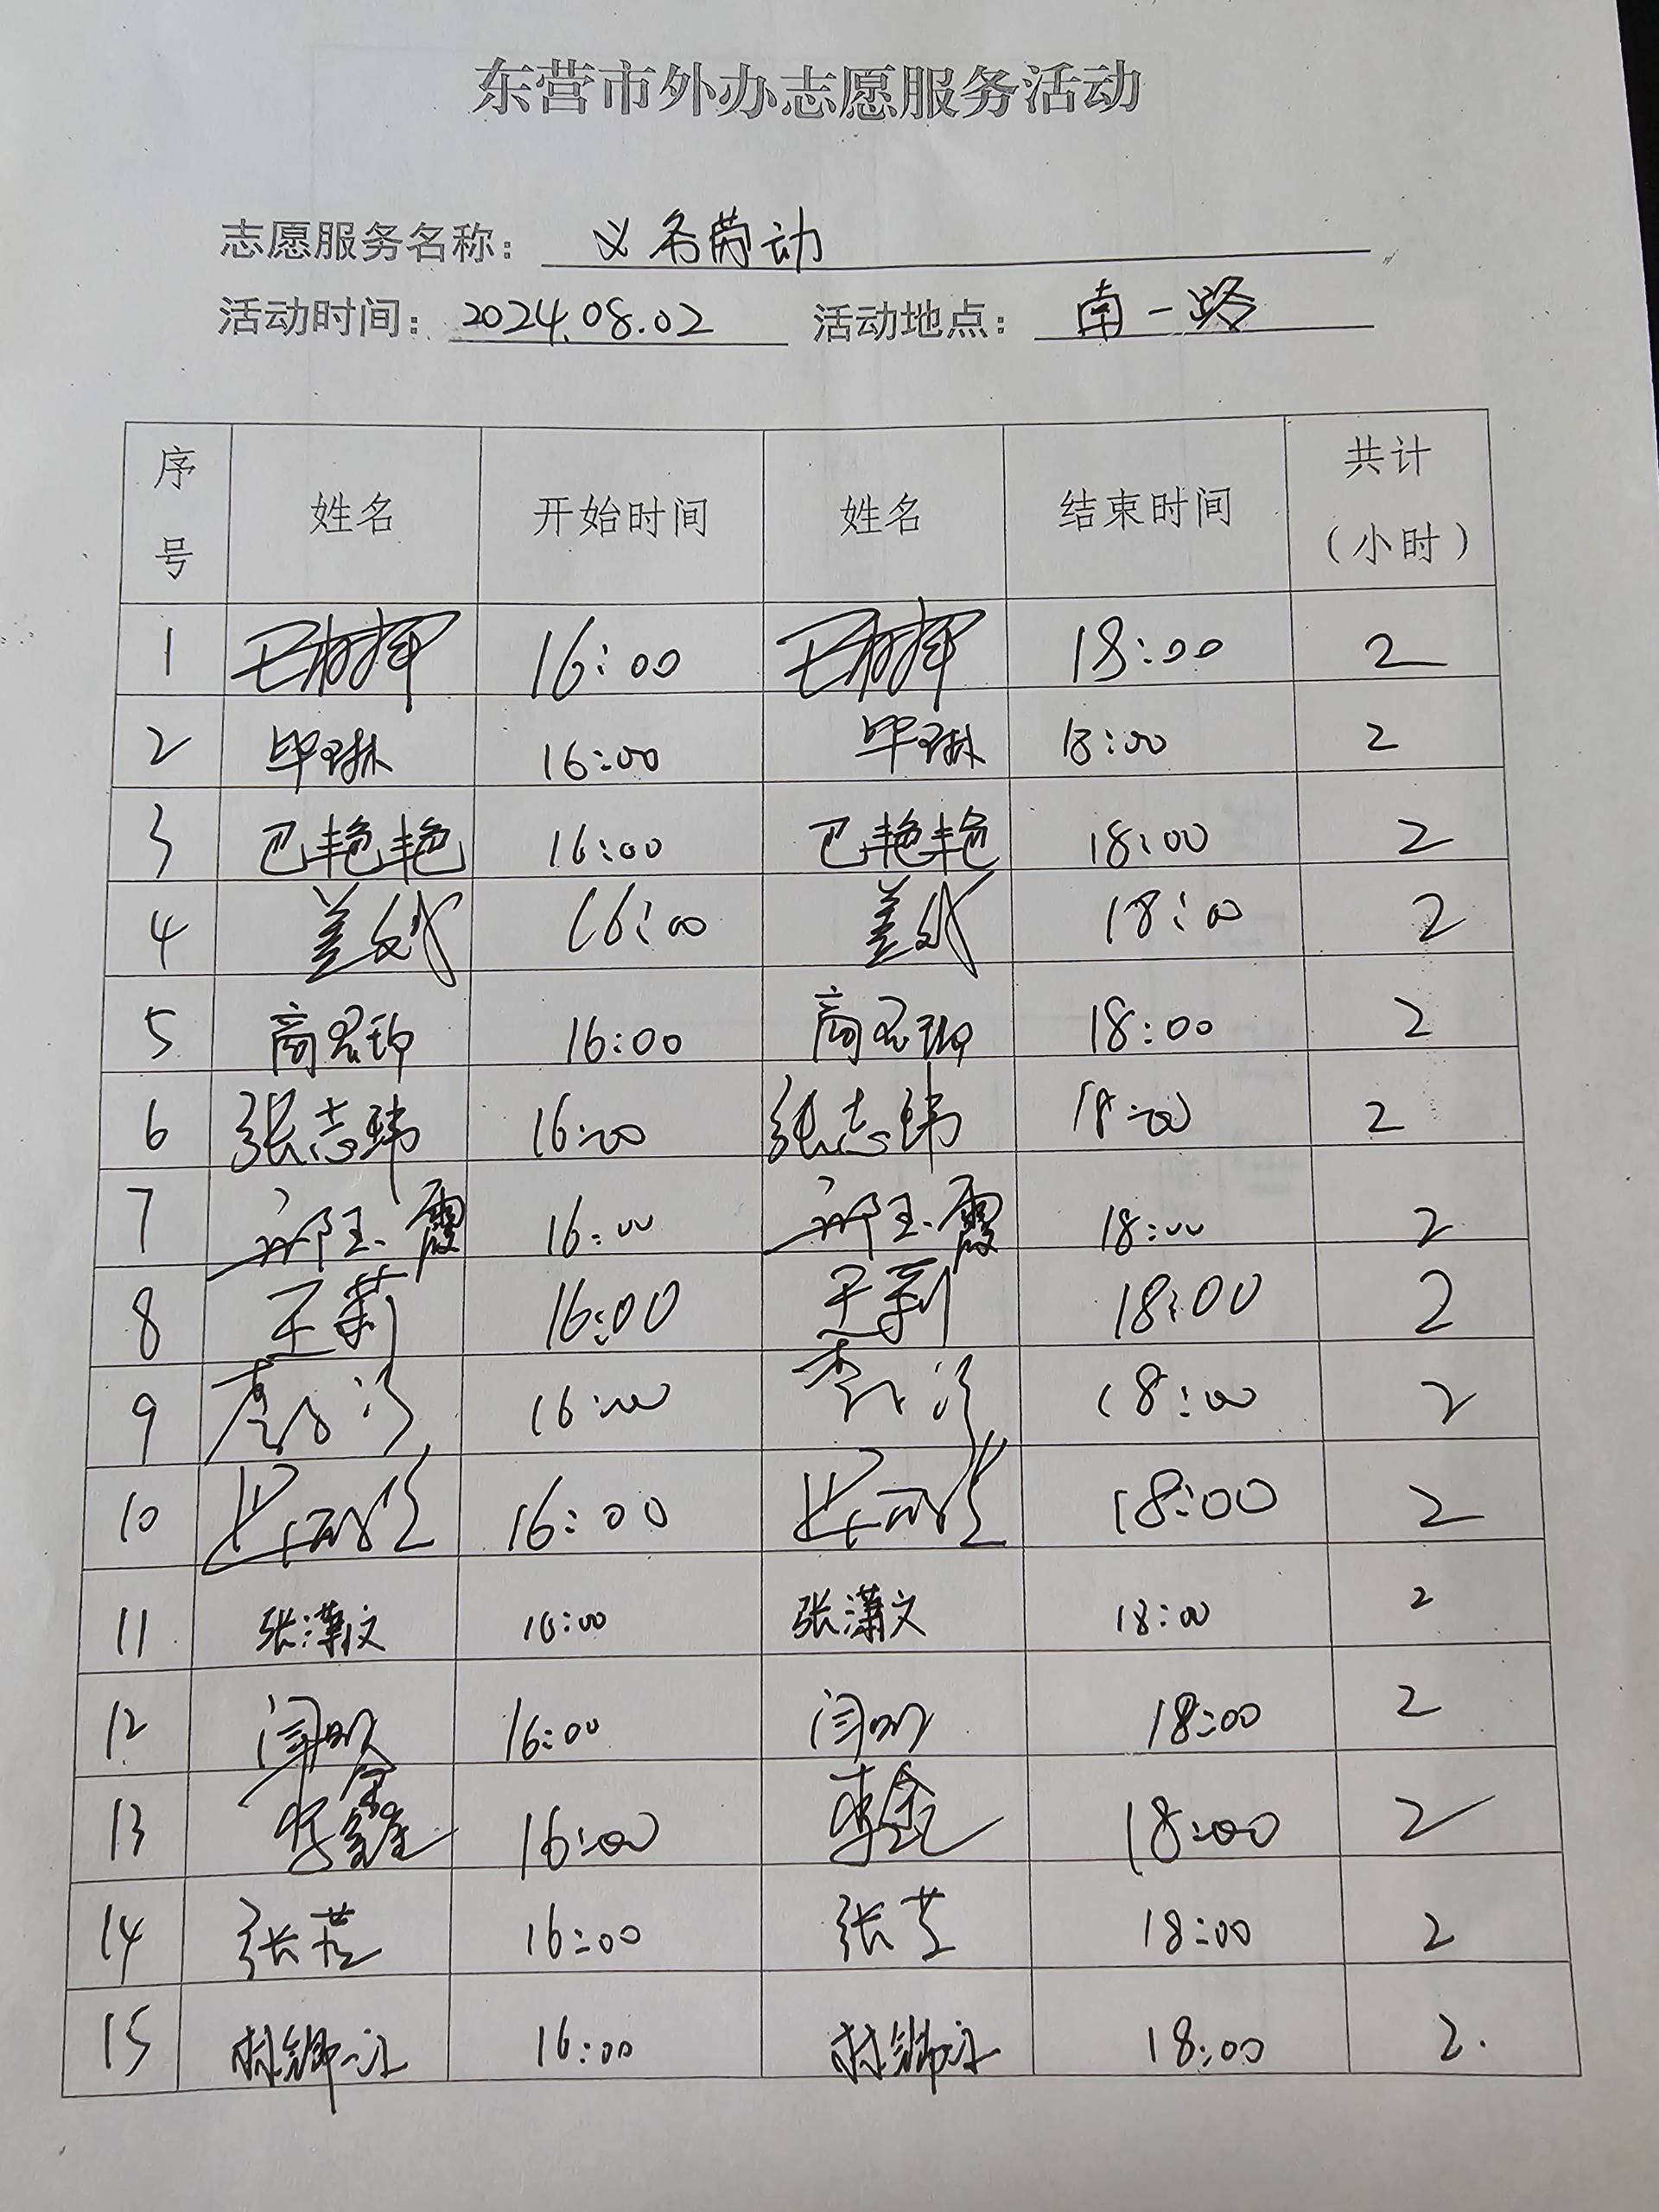 东营市外办志愿服务活动
志愿服务名称：义务劳动
活动时间：2024.08.02 活动地点：南一路
序号 姓名 开始时间 姓名 结束时间 共计（小时）
1 16:00 18:00 2
2 毕琳 16:00 毕琳 18:00 2
3 巴艳艳 16:00 巴艳艳 18:00 2
4 16:00 18:00 2
5 商 16:00 商 18:00 2
6 张志玮 16:00 张志玮 18:00 2
7 玉霞 16:00 玉霞 18:00 2
8 王莉 16:00 王莉 18:00 2
9 16:00 李 18:00 2
10 16:00 18:00 2
11 张潇文 16:00 张潇文 18:00 2
12 闫 16:00 闫 18:00 2
13 李鑫 16:00 李鑫 18:00 2
14 张芸 16:00 张芸 18:00 2
15 林 16:00 林 18:00 2.